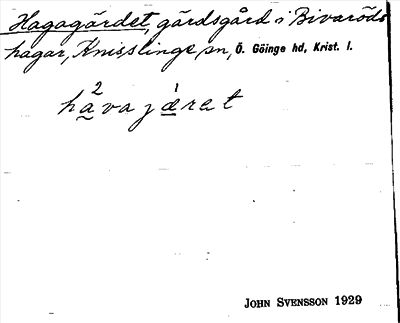 Hagagärdet, gärdsgård i Bivaröds
hagar, Knisslinge sn, Ö. Göinge hd, Krist. l.
ha̰²vajæ̱¹ret
JOHN SVENSSON 1929